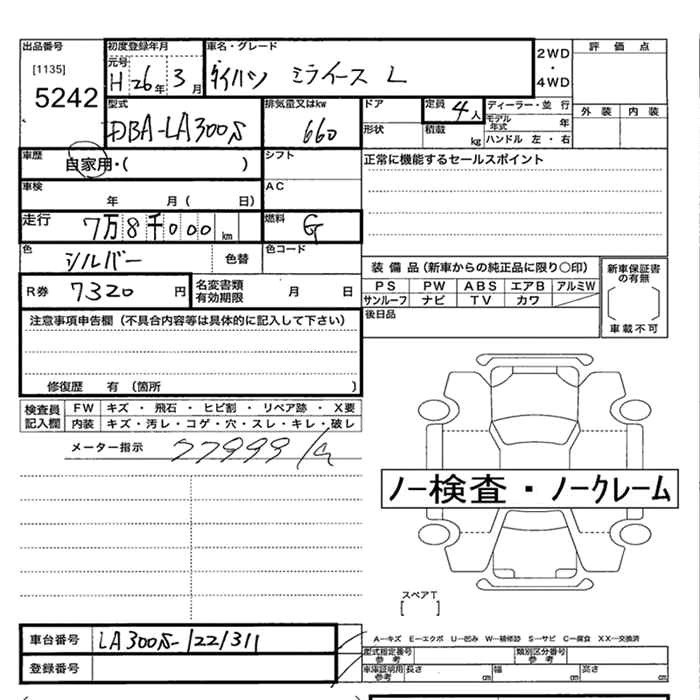 出品番号 初度登録年月 車名・グレード 2WD 評価点
[1135] 元号 H 26年 3月 ダイハツ ミライース L ・
5242 4WD
型式 排気量又はkw ドア 定員 4人 ディーラー・並行 外装 内装
DBA-LA300S 660 形状 積載 kg モデル年式 年
ハンドル 左・右
車歴 自家用・( ) シフト 正常に機能するセールスポイント
車検 年 月( 日) AC
走行 7万8千000km 燃料 G
色 シルバー 色替 色コード
装備品(新車からの純正品に限り○印) 新車保証書の有無
R券 7320円 名変書類有効期限 月 日 PS PW ABS エアB アルミW
サンルーフ ナビ TV カワ
注意事項申告欄(不具合内容等は具体的に記入して下さい) 後日品 車載不可
修復歴 有(箇所 )
検査員記入欄 FW キズ・飛石・ヒビ割・リペア跡・X要
内装 キズ・汚レ・コゲ・穴・スレ・キレ・破レ
メーター指示 77999
ノー検査・ノークレーム
スペアT
[ ]
車台番号 LA300S-1221311 A―キズ E―エクボ U―凹み W―補修跡 S―サビ C―腐食 XX―交換済
登録番号 型式指定番号 参考 類別区分番号 参考
車庫証明用 参考 長さ cm 幅 cm 高さ cm